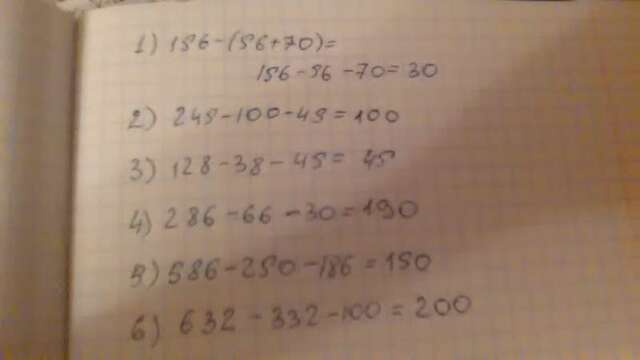 1) 156-(56+70)=
156-56-70=30
2) 245-100-45=100
3) 128-38-45= 45
4) 286-66-30=190
5) 586-250-186=150
6) 632-332-100=200